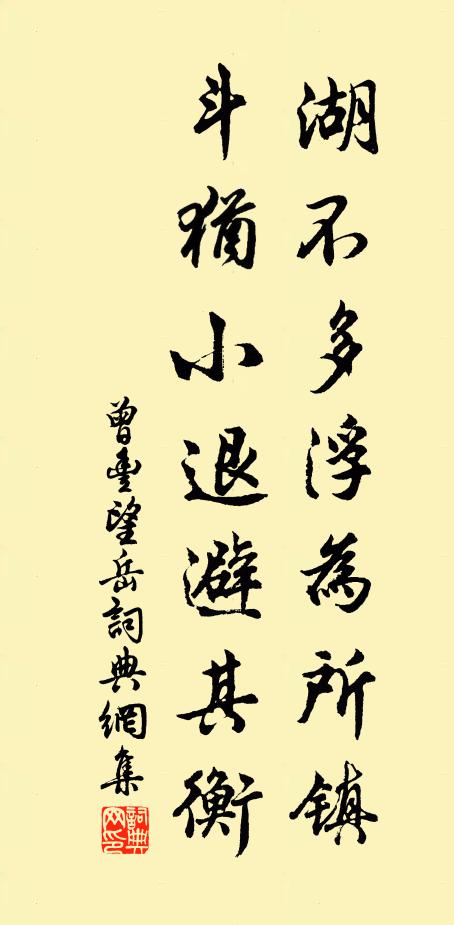 湖不多浮為所鎮
斗猶小退避其衡
曾豐望岳詞典網集
詞典网印